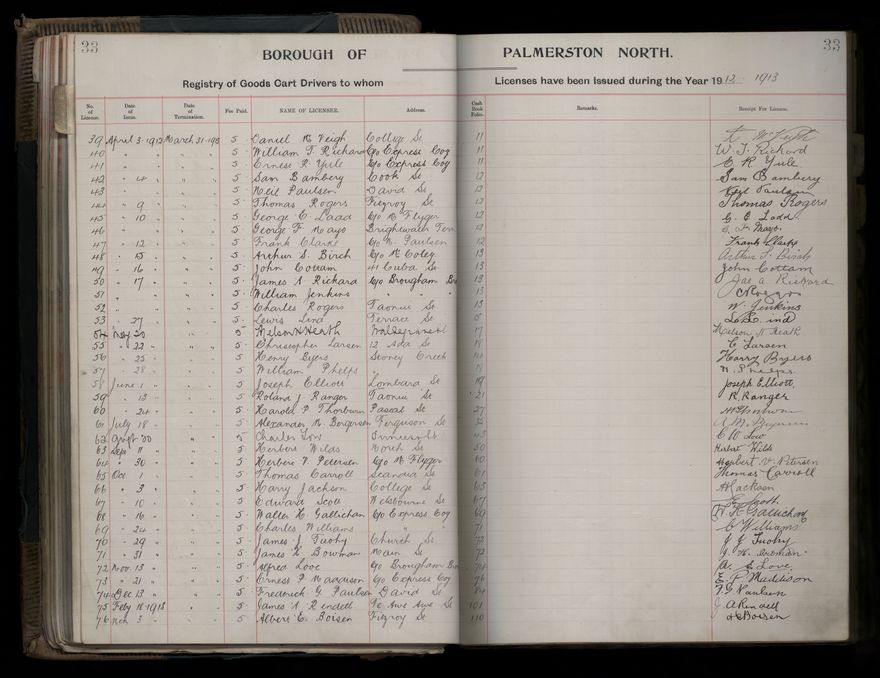 33 33
BOROUGH OF PALMERSTON NORTH.
Registry of Goods Cart Drivers to whom Licenses have been Issued during the Year 1912 - 1913
No. of License. Date of Issue. Date of Termination. Fee Paid. NAME OF LICENSEE. Address. Cash Book Folio. Remarks. Receipt For License.
39 April 3. 1912 March 31. 1913 5 - Daniel College St 11
40 " " " " 5 - William T. Richard C/o Express Coy 11 W. T. Richard
41 " " " " 5 - Ernest R. Yule C/o Express Coy 11 E R Yule
42 " 4 " " " 5 - Sam Bambery Cook St 12 Sam Bambery
43 " " " " 5 - Neil Paulsen David St 12 Neil Paulsen
44 " 9 " " " 5 - Thomas Rogers Fitzroy St 12 Thomas Rogers
45 " 10 " " " 5 - George E. Ladd C/o M Flyger 12 G E Ladd
46 " " " " 5 - George F Mayo Brightwater Terr 12 G. F. Mayo
47 " 12 " " " 5 - Frank Clarke C/o N. Paulsen 12 Frank Clarke
48 " 15 " " " 5 - Arthur S. Birch C/o 13 Arthur S. Birch
49 " 16 " " " 5 - John Cottam 41 Cuba St 13 John Cottam
50 " 17 " " " 5 - James A Rickard C/o Brougham 13 Jas A Rickard
51 " " " " 5 - William Jenkins " 13 C Rogers
52 " " " " 5 - Charles Rogers Taonui St 13 W. Jenkins
53 " 27 " " " 5 - Lewis Terrace St
54 May 20 " " 5 Nelson N Heath 17 Nelson N Heath
55 " 22 " " " 5 - Christopher Larsen 12 Ada St 18 C Larsen
56 " 25 " " " 5 - Henry Byers Stoney Creek Harry Byers
57 " 28 " " " 5 - William Phelps 18 W. Phelps
58 June 1 " " " 5 - Joseph Elliott Lombard St 19 Joseph Elliott
59 " 13 " " " 5 - Roland J. Ranger Taonui St 21 R. Ranger
60 " 24 " " " 5 - Harold P Thorburn Pascal St 27
61 July 18 " " " 5 - Alexander M. Ferguson St
62 20 " " 5 Charles Low 45 C W Low
63 Sept 11 " " 5 - Herbert Wilds North St 50 Herbert Wilds
64 " 30 " " " 5 - Herbert V. Petersen C/o M Flyger 60 Herbert V. Petersen
65 Oct 1 " " " 5 - Thomas Carroll Scandia St 61 Thomas Carroll
66 " 3 " " " 5 - Harry Jackson College St 65 H Jackson
67 " 10 " " " 5 - Edward Scott Melbourne St 67 E Scott
68 " 16 " " " 5 - Walter H. Gallichan C/o Express Coy 69 W. H Gallichan
69 " 24 " " " 5 - Charles Williams " 71 C Williams
70 " 29 " " " 5 - James J Tuohy Church St 72 J J Tuohy
71 " 31 " " " 5 - James H. Bowman Main St 72 J. H. Bowman
72 Nov. 13 " " " 5 - Alfred Love C/o Brougham 74 A. E Love
73 " 21 " " " 5 - Ernest P. Maddison C/o Express Coy 76 E. P. Maddison
74 Dec 13 " " " 5 - Frederick G Paulsen David St 84 F. G Paulsen
75 Feby 18. 1913 " " 5 - James A Rendell Te Awe Awe St 101 J A Rendell
76 Mch 3 " " " 5 - Albert E. Boisen Fitzroy St 110 A E Boisen